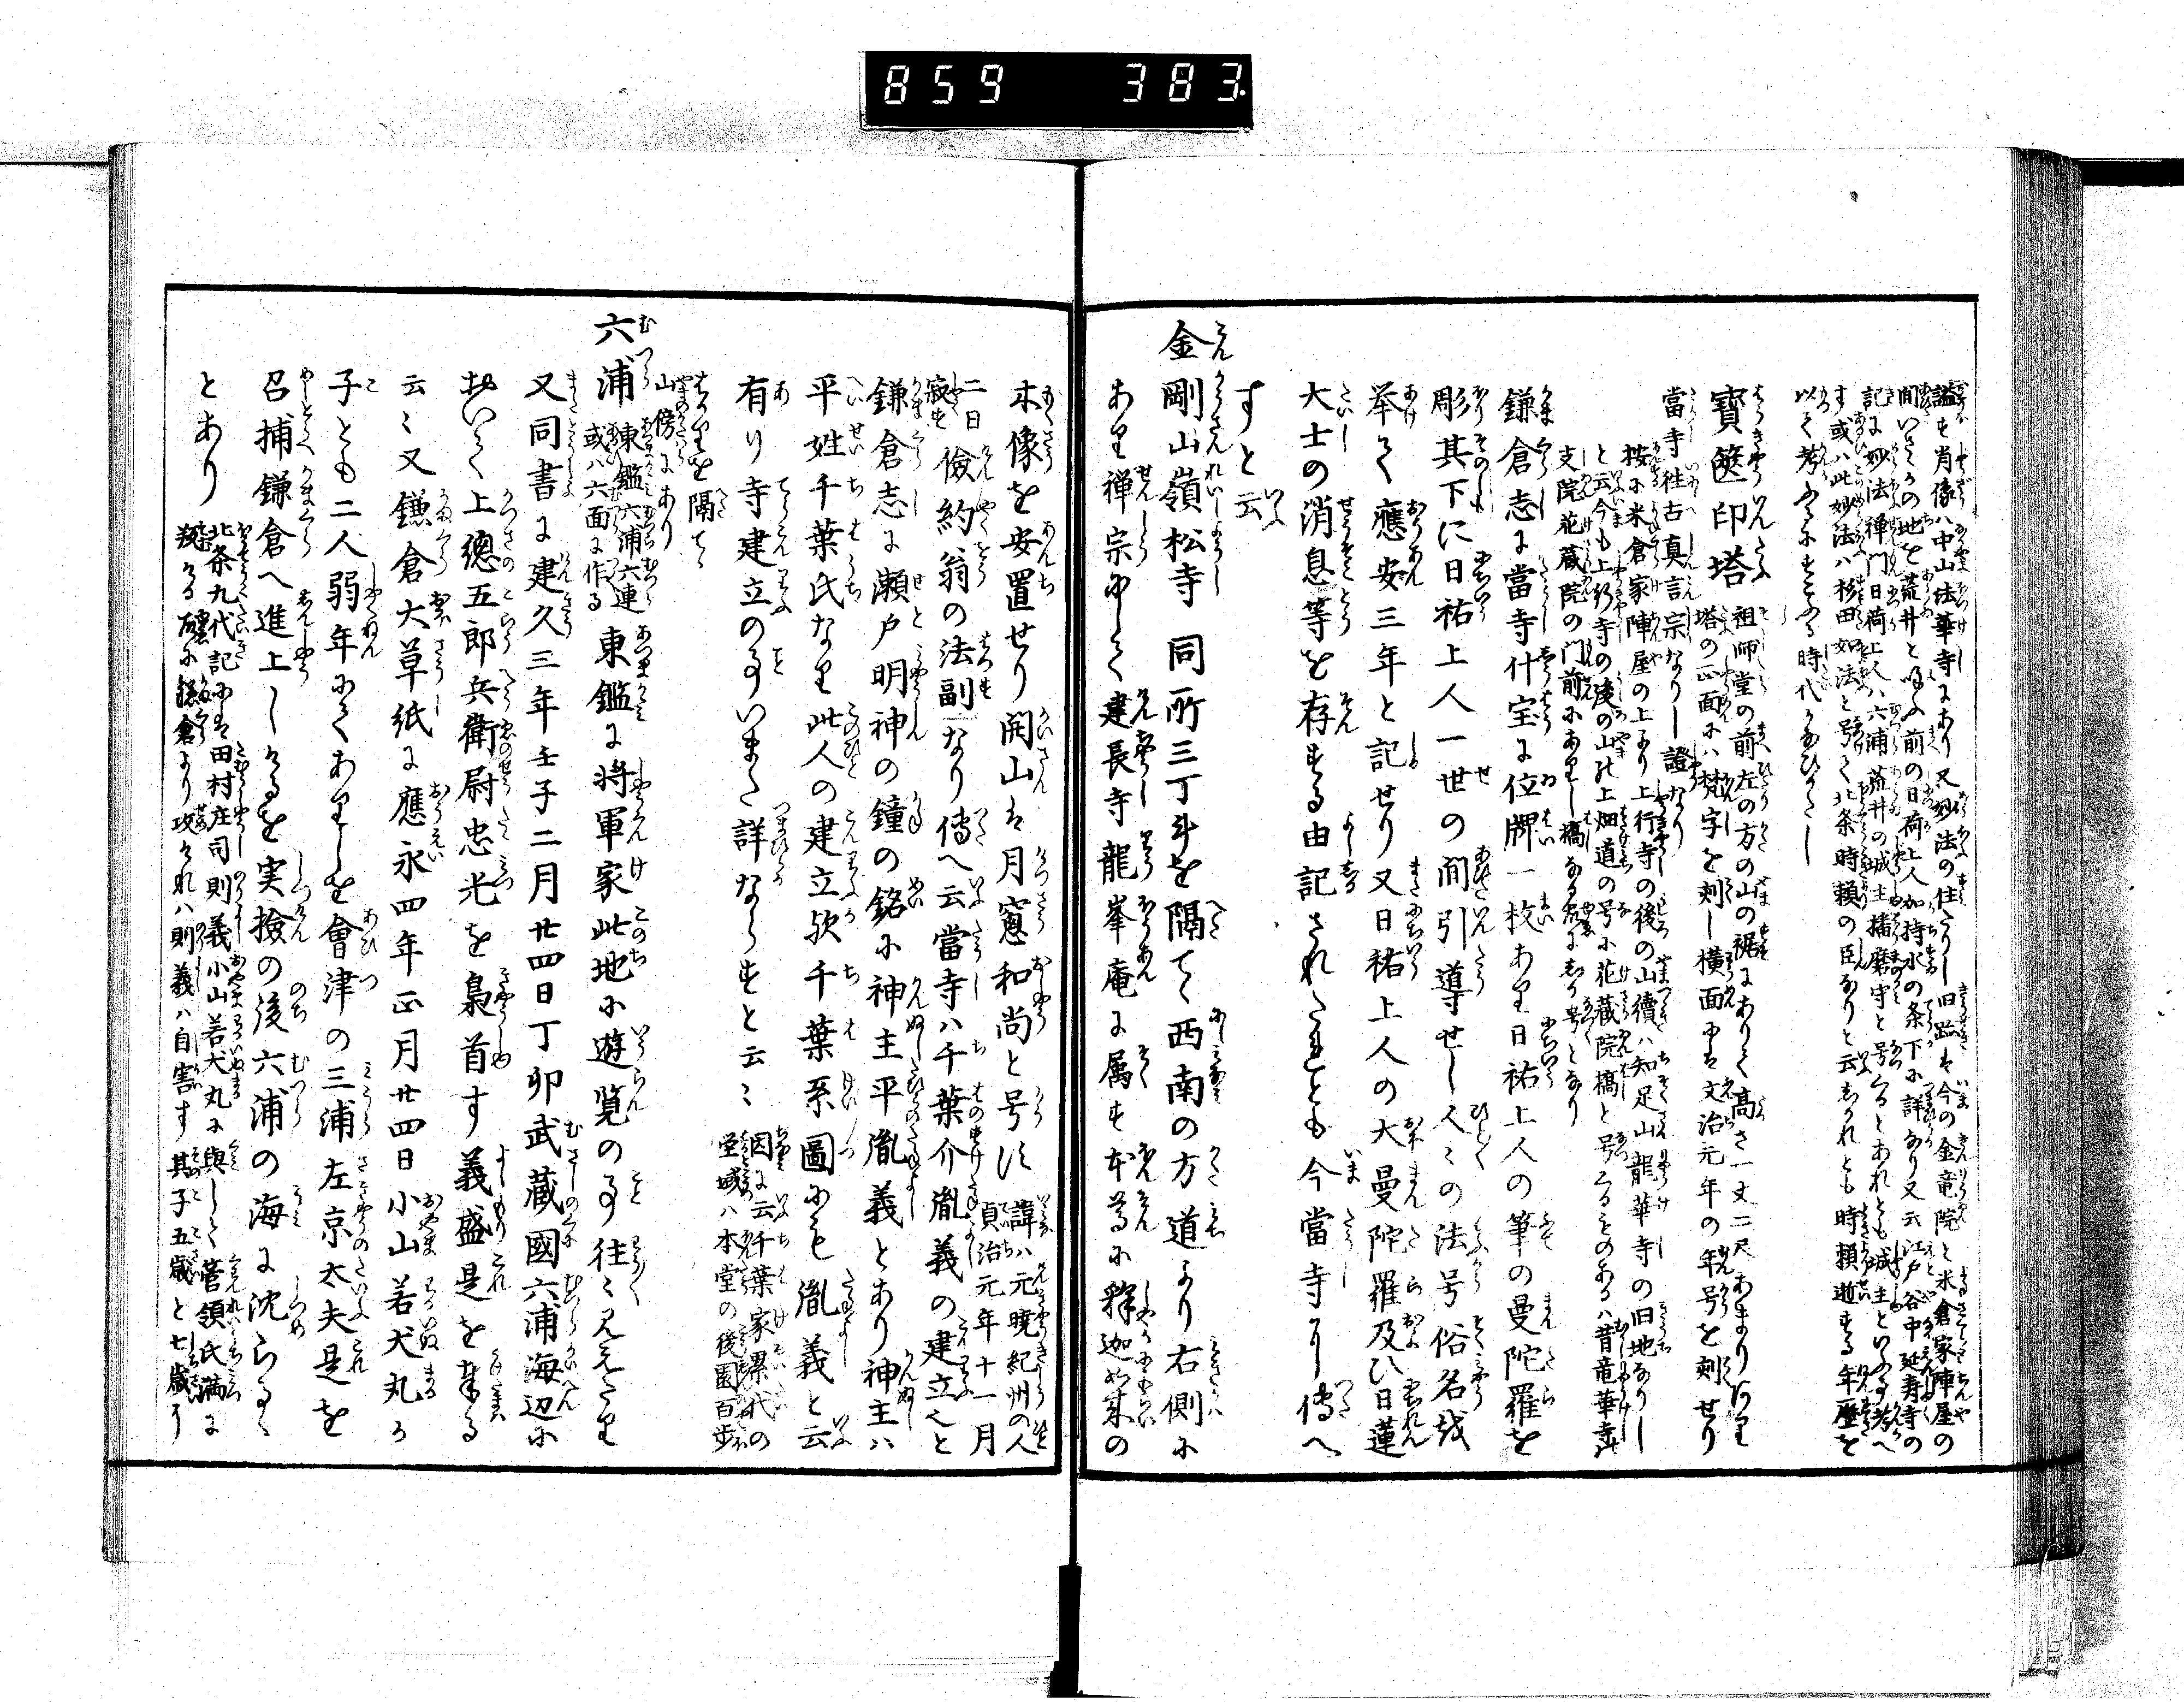 859 383
謚す肖像ハ中山法華寺にあり又妙法の住たりし旧跡は今の金竜院と米倉家陣屋の
間いさゝかの地を荒井と唱ふ前の日荷上人加持水の条下に詳なり又云江戸谷中延寿寺の
記に妙法禅門日荷上人ハ六浦荒井の城主播磨守と号するとあれとも城主といふ事考へ
す或ハ此妙法ハ杉田妙法と号して北条時頼の臣なりと云しかれとも時頼逝する年暦を
以て考ふるに
寳篋印塔
祖師堂の前左の方の山の裾にありて高さ一丈二尺あまりあり
塔の正面にハ梵字を刻し横面には文治元年の年号を刻せり
當寺往古真言宗なりし證なり
按に米倉家陣屋の上より上行寺の後の山續ハ知足山龍華寺の旧地なりし
と云今も上行寺の後の山の上畑道の号に花蔵院橋と号するものあるハ昔竜華寺
支院花蔵院の門前にありし橋なる故にしか号くとなり
鎌倉志に當寺什宝に位牌一枚あり日祐上人の筆の曼陀羅を
彫其下に日祐上人一世の間引導せし人々の法号俗名を
挙て應安三年と記せり又日祐上人の大曼陀羅及ひ日蓮
大士の消息等を存する由記されたれとも今當寺に傳へ
すと云
金剛山嶺松寺 同所三丁斗を隔て西南の方道より右側に
あり禅宗にして建長寺龍峯庵に属す本尊に釋迦如来の
木像を安置せり開山は月窓和尚と号す
諱ハ元暁紀州の人
貞治元年十一月
二日
寂す
儉約翁の法副なり傳へ云當寺ハ千葉介胤義の建立と
鎌倉志に瀬戸明神の鐘の銘に神主平胤義とあり神主ハ
平姓千葉氏なり此人の建立欤千葉系圖にも胤義と云
有り寺建立の事いまた詳ならすと云々
因に云千葉家累代の
塋域ハ本堂の後園百歩
はかりを隔て
山傍にあり
六浦
東鑑六浦六連
或ハ六面に作る
東鑑に将軍家此地に遊覧の事往々見えたり
又同書に建久三年壬子二月廿四日丁卯武蔵國六浦海辺に
おいて上總五郎兵衛尉忠光を梟首す義盛是を奉る
云々又鎌倉大草紙に應永四年正月廿四日小山若犬丸か
子とも二人弱年にてありしを會津の三浦左京太夫是を
召捕鎌倉へ進上しけるを実撿の後六浦の海に沈らるゝ
とあり
北条九代記には田村庄司則義小山若犬丸に與して管領氏満に
叛ける故に鎌倉より攻けれハ則義ハ自害す其子五歳と七歳に